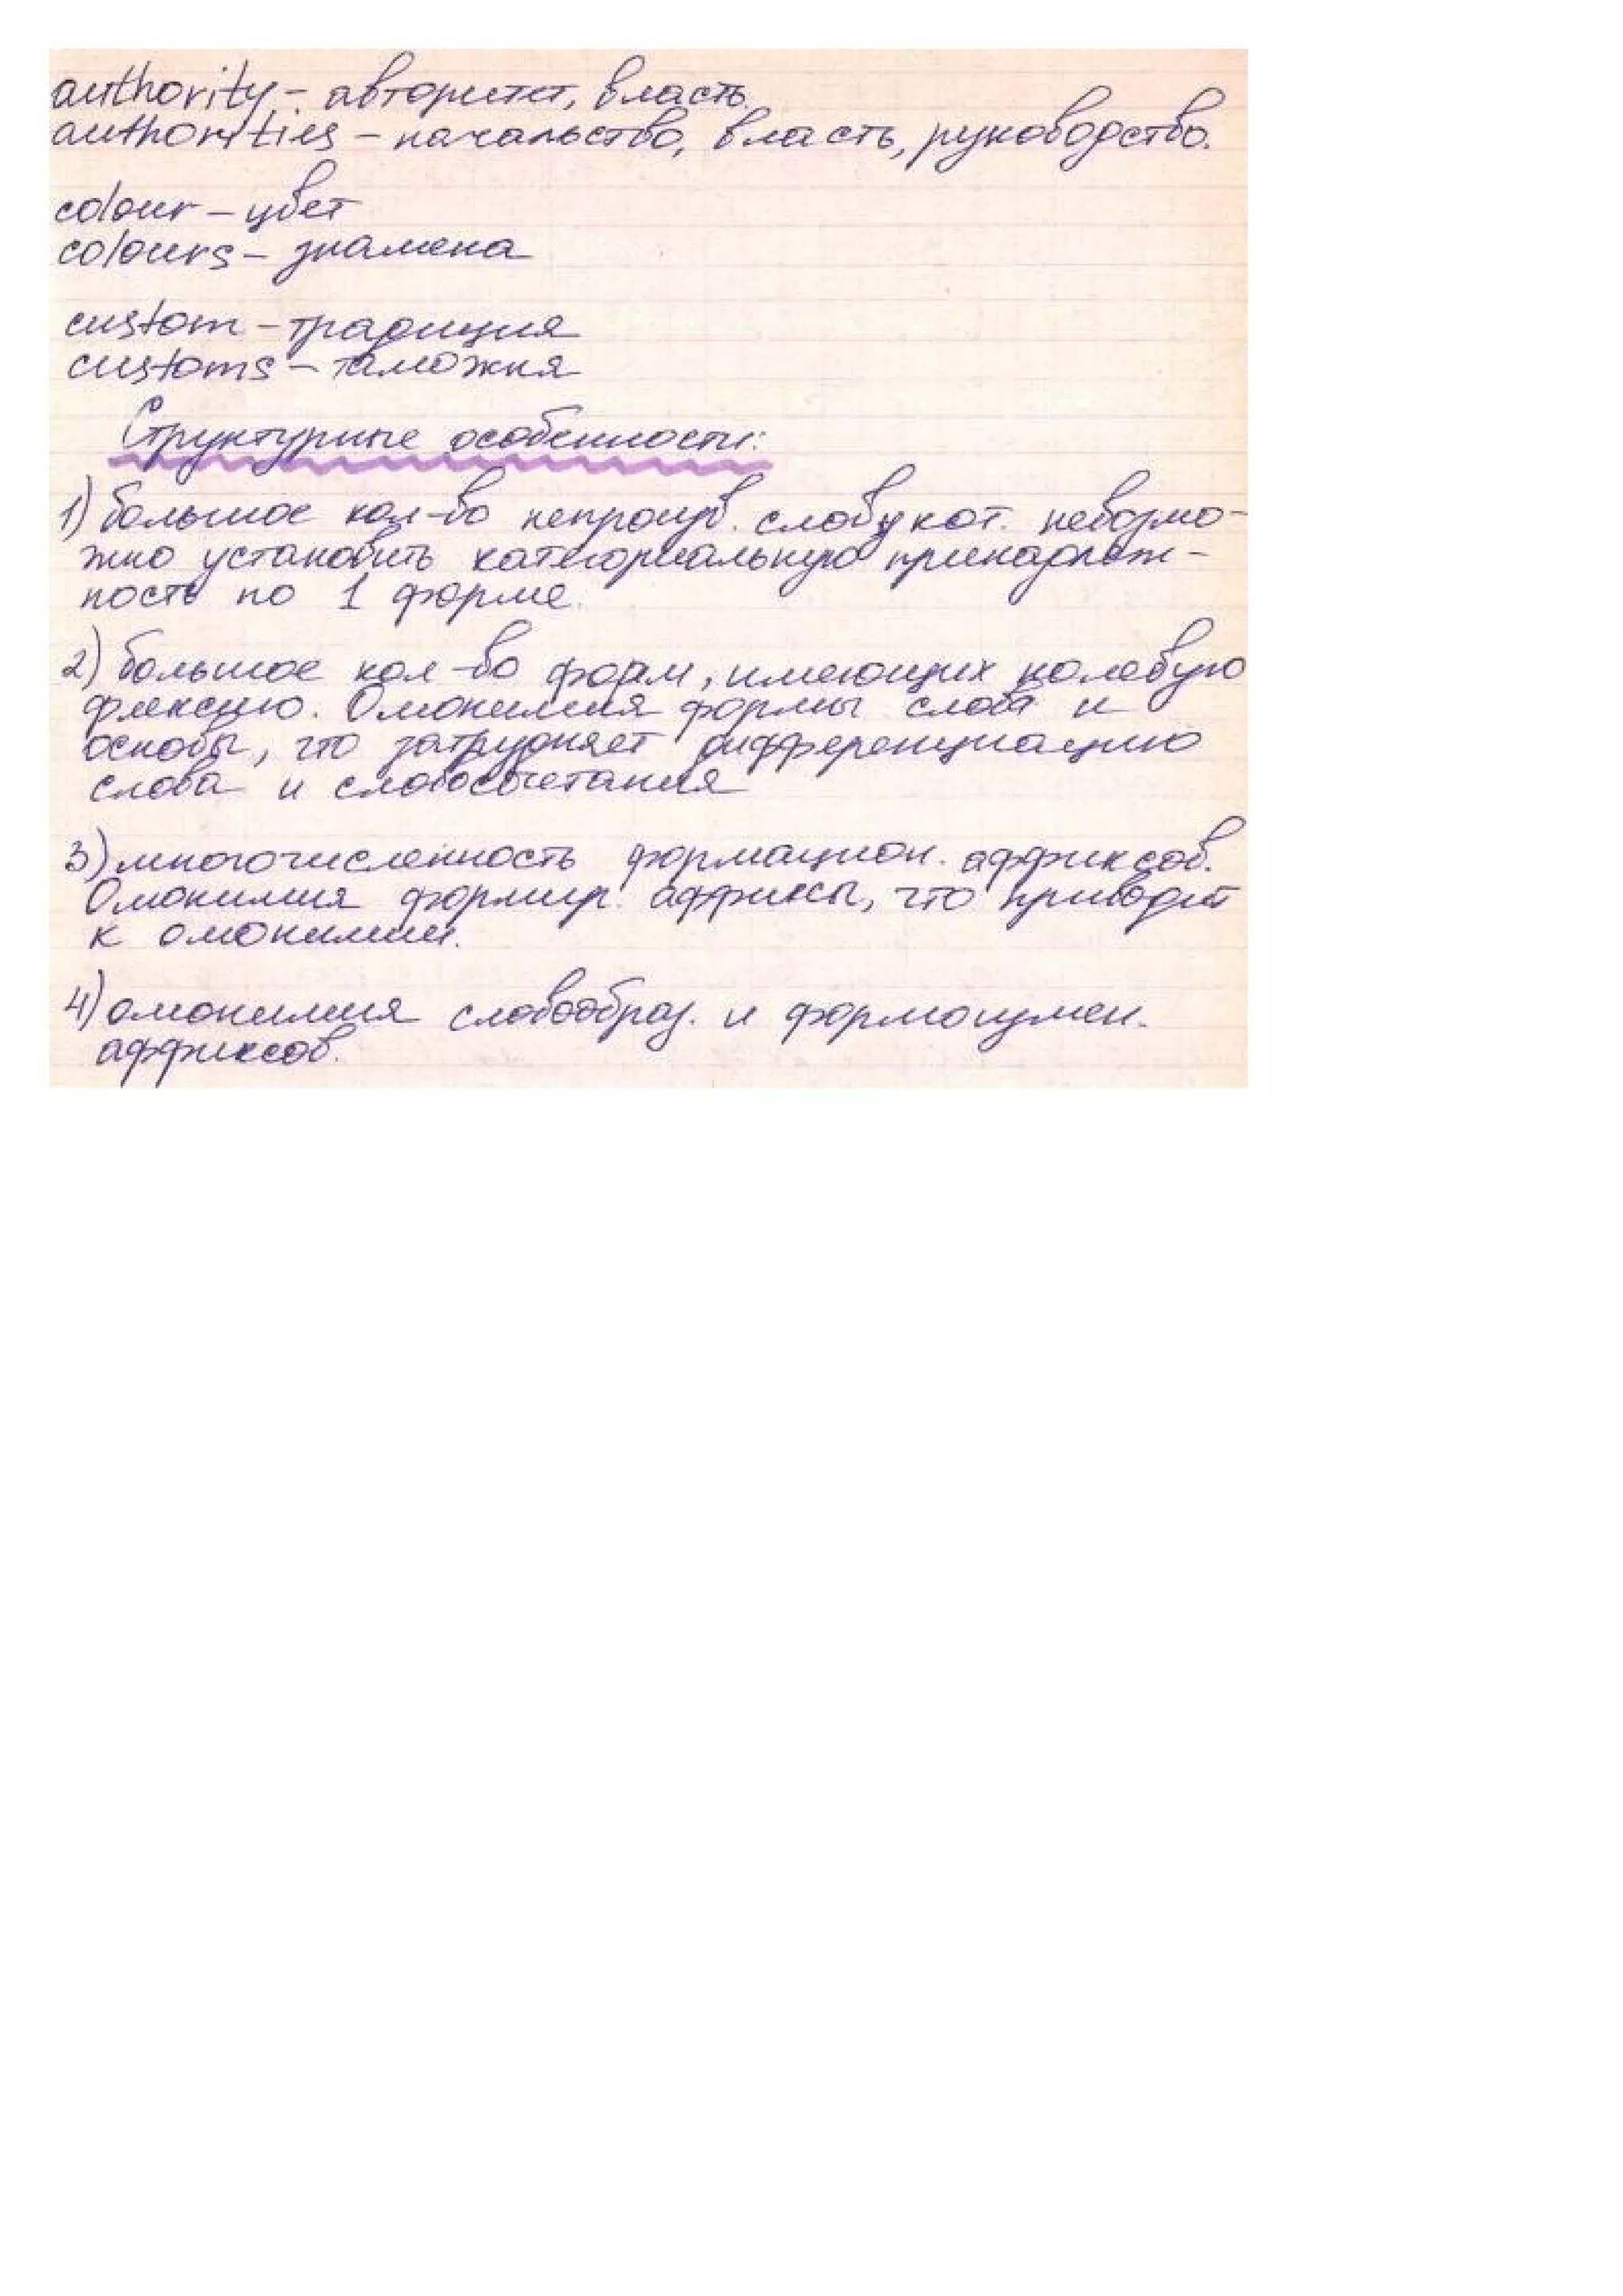 authority – авторитет, власть.
authorities – начальство, власть, руководство.
colour – цвет
colours – знамена
custom – традиция
customs – таможня
Структурные особенности:
1) большое кол-во непроизв. слов, у кот. невозмо-
жно установить категориальную принадлеж-
ность по 1 форме.
2) большое кол-во форм, имеющих нолевую
флексию. Омонимия формы слова и
основы, что затрудняет дифференциацию
слова и словосочетания
3) многочисленность формацион. аффиксов.
Омонимия формир. аффиксы, что приводит
к омонимии.
4) омонимия словообраз. и формоизмен.
аффиксов.